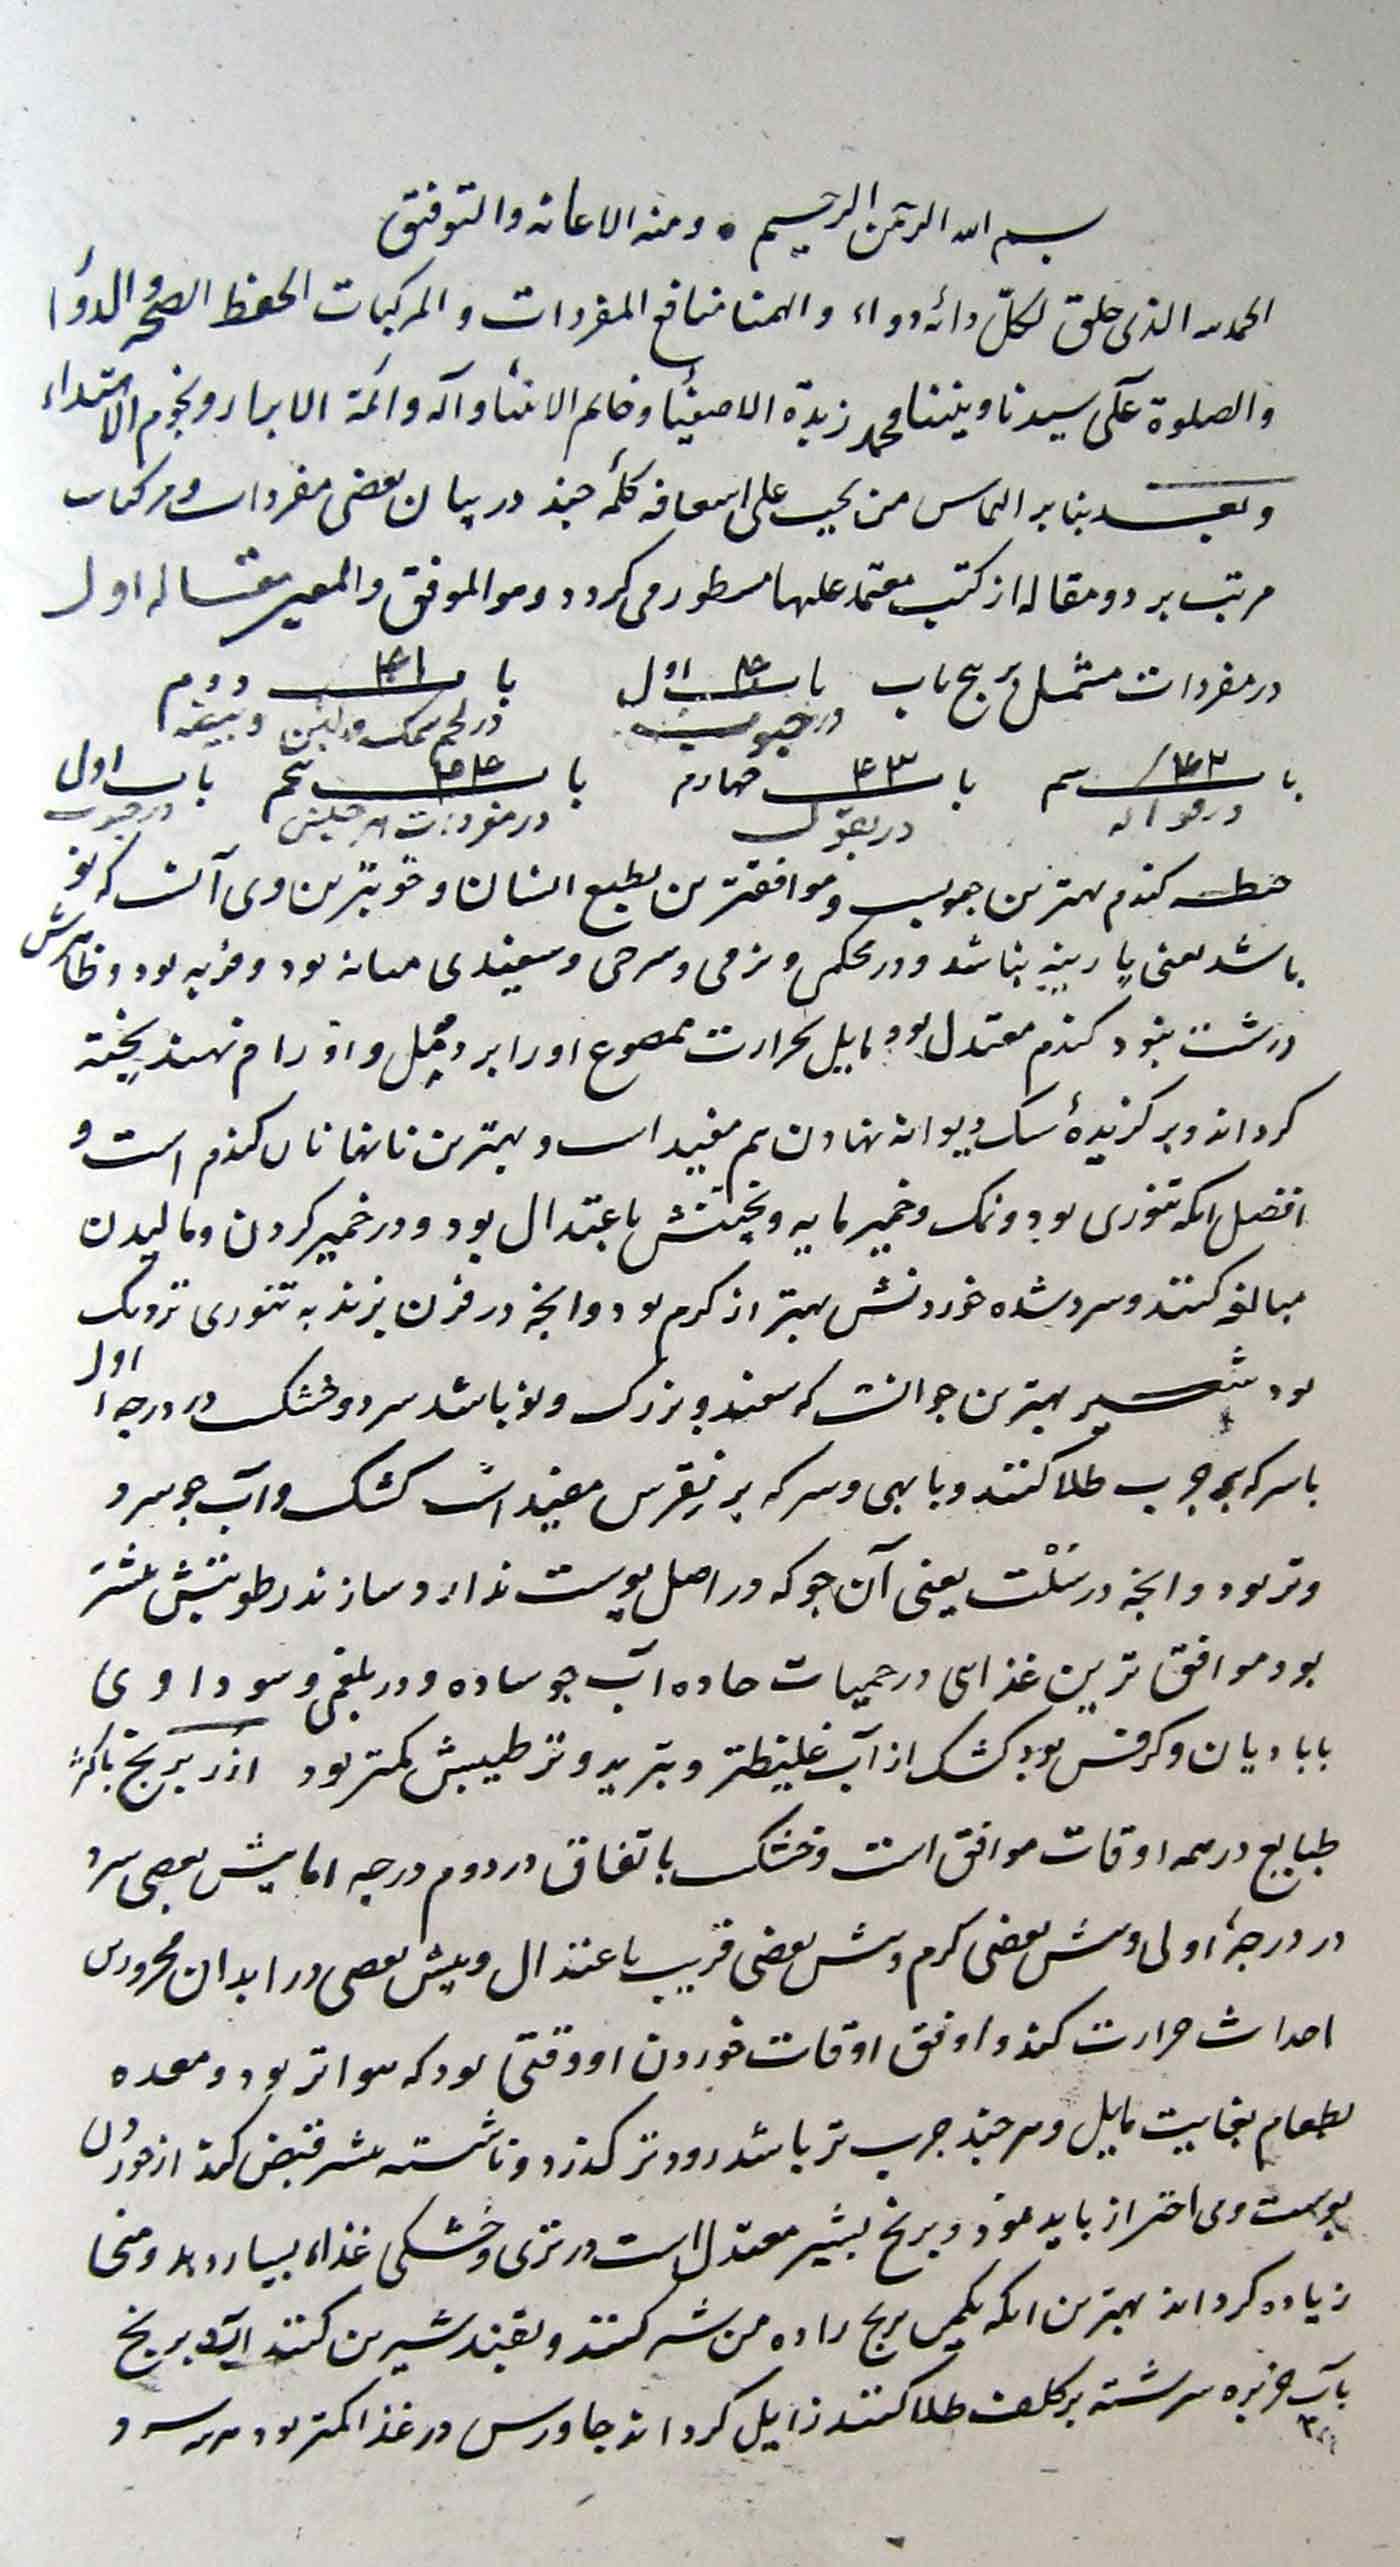 بسم الله الرحمن الرحیم ومنه الاعانه والتوفیق
الحمدلله الذی خلق لکلّ دائه دواء والهمنا منافع المفردات و المرکبات الحفظ الصحّه والدوا
والصلوة علی سیدنا ونبینا محمد زبدة الاصفیا وخاتم الانبیا وآله وائمة الابرار ونجوم الاهتداء
وبعد بنابر التماس من یجب علی اسعافه کلمهٔ چند در بیان بعضی مفردات ومرکبات
مرتب بر دو مقاله از کتب معتمد علیها مسطور می کردد وهو الموفق والمعین مقاله اول
در مفردات مشتمل بر پنج باب باب اول در حبوب باب دوم در لحم سمک ولبن وبیضه
باب سیم در فواکه باب چهارم در بقول باب پنجم در مفردات باب اول در حبوب
حنطه کندم بهترین حبوب وموافقترین بطبع انسان وقویترین وی آنست که نو
باشد یعنی پارینه نباشد ودر محکمی ونرمی وسرخی وسفیدی میانه بود وفربه بود وظاهرش
درشت نبود کندم معتدل بود مایل بحرارت ممضوغ او را بر دمل واورام نهند پخته
کرداند وبر کزیدهٔ سک دیوانه نهادن هم مفید است وبهترین نانها نان کندم است و
افضل انکه تنوری بود ونمک وخمیر مایه وپختنش باعتدال بود ودر خمیر کردن ومالیدن
مبالغه کنند وسرد شده خوردنش بهتر از کرم بود وانچه در فرن پزند به تنوری نزدیک
بود شعیر بهترین جو انست که سفید وبزرک ونو باشد سرد وخشک در درجه اول
با سرکه بر جرب طلا کنند وبا بهی وسرکه بر نقرس مفید است کشک وآب جو سرد
وتر بود وانچه در سُلْت یعنی آن جو که در اصل پوست ندارد سازند رطوبتش بیشتر
بود موافق ترین غذای در حمیات حاده آب جو ساده ودر بلغمی وسوداوی
با بادیان وکرفس بود کشک از آب غلیظتر وتبرید وترطیبش کمتر بود ارز برنج باکثر
طبایع در همه اوقات موافق است وخشک باتفاق در دوم درجه اما پیش بعضی سرد
در درجهٔ اولی وپیش بعضی کرم وپیش بعضی قریب باعتدال وپیش بعضی در ابدان محرورین
احداث حرارت کند واوفق اوقات خوردن او وقتی بود که هوا تر بود ومعده
بطعام بغایت مایل وهر چند چرب تر باشد زودتر کذرد وناشسته بیشتر قبض کند از خوردن
پوست وی احتراز باید نمود وبرنج بشیر معتدل است در تری وخشکی غذاء بسیار دهد ومنی را
زیاده کرداند بهترین انکه یکمن برنج را ده من شیر کنند وبقند شیرین کنند آرد برنج
بآب خربزه سرشته بر کلف طلا کنند زایل کرداند جاورس در غذا کمتر بود سرد